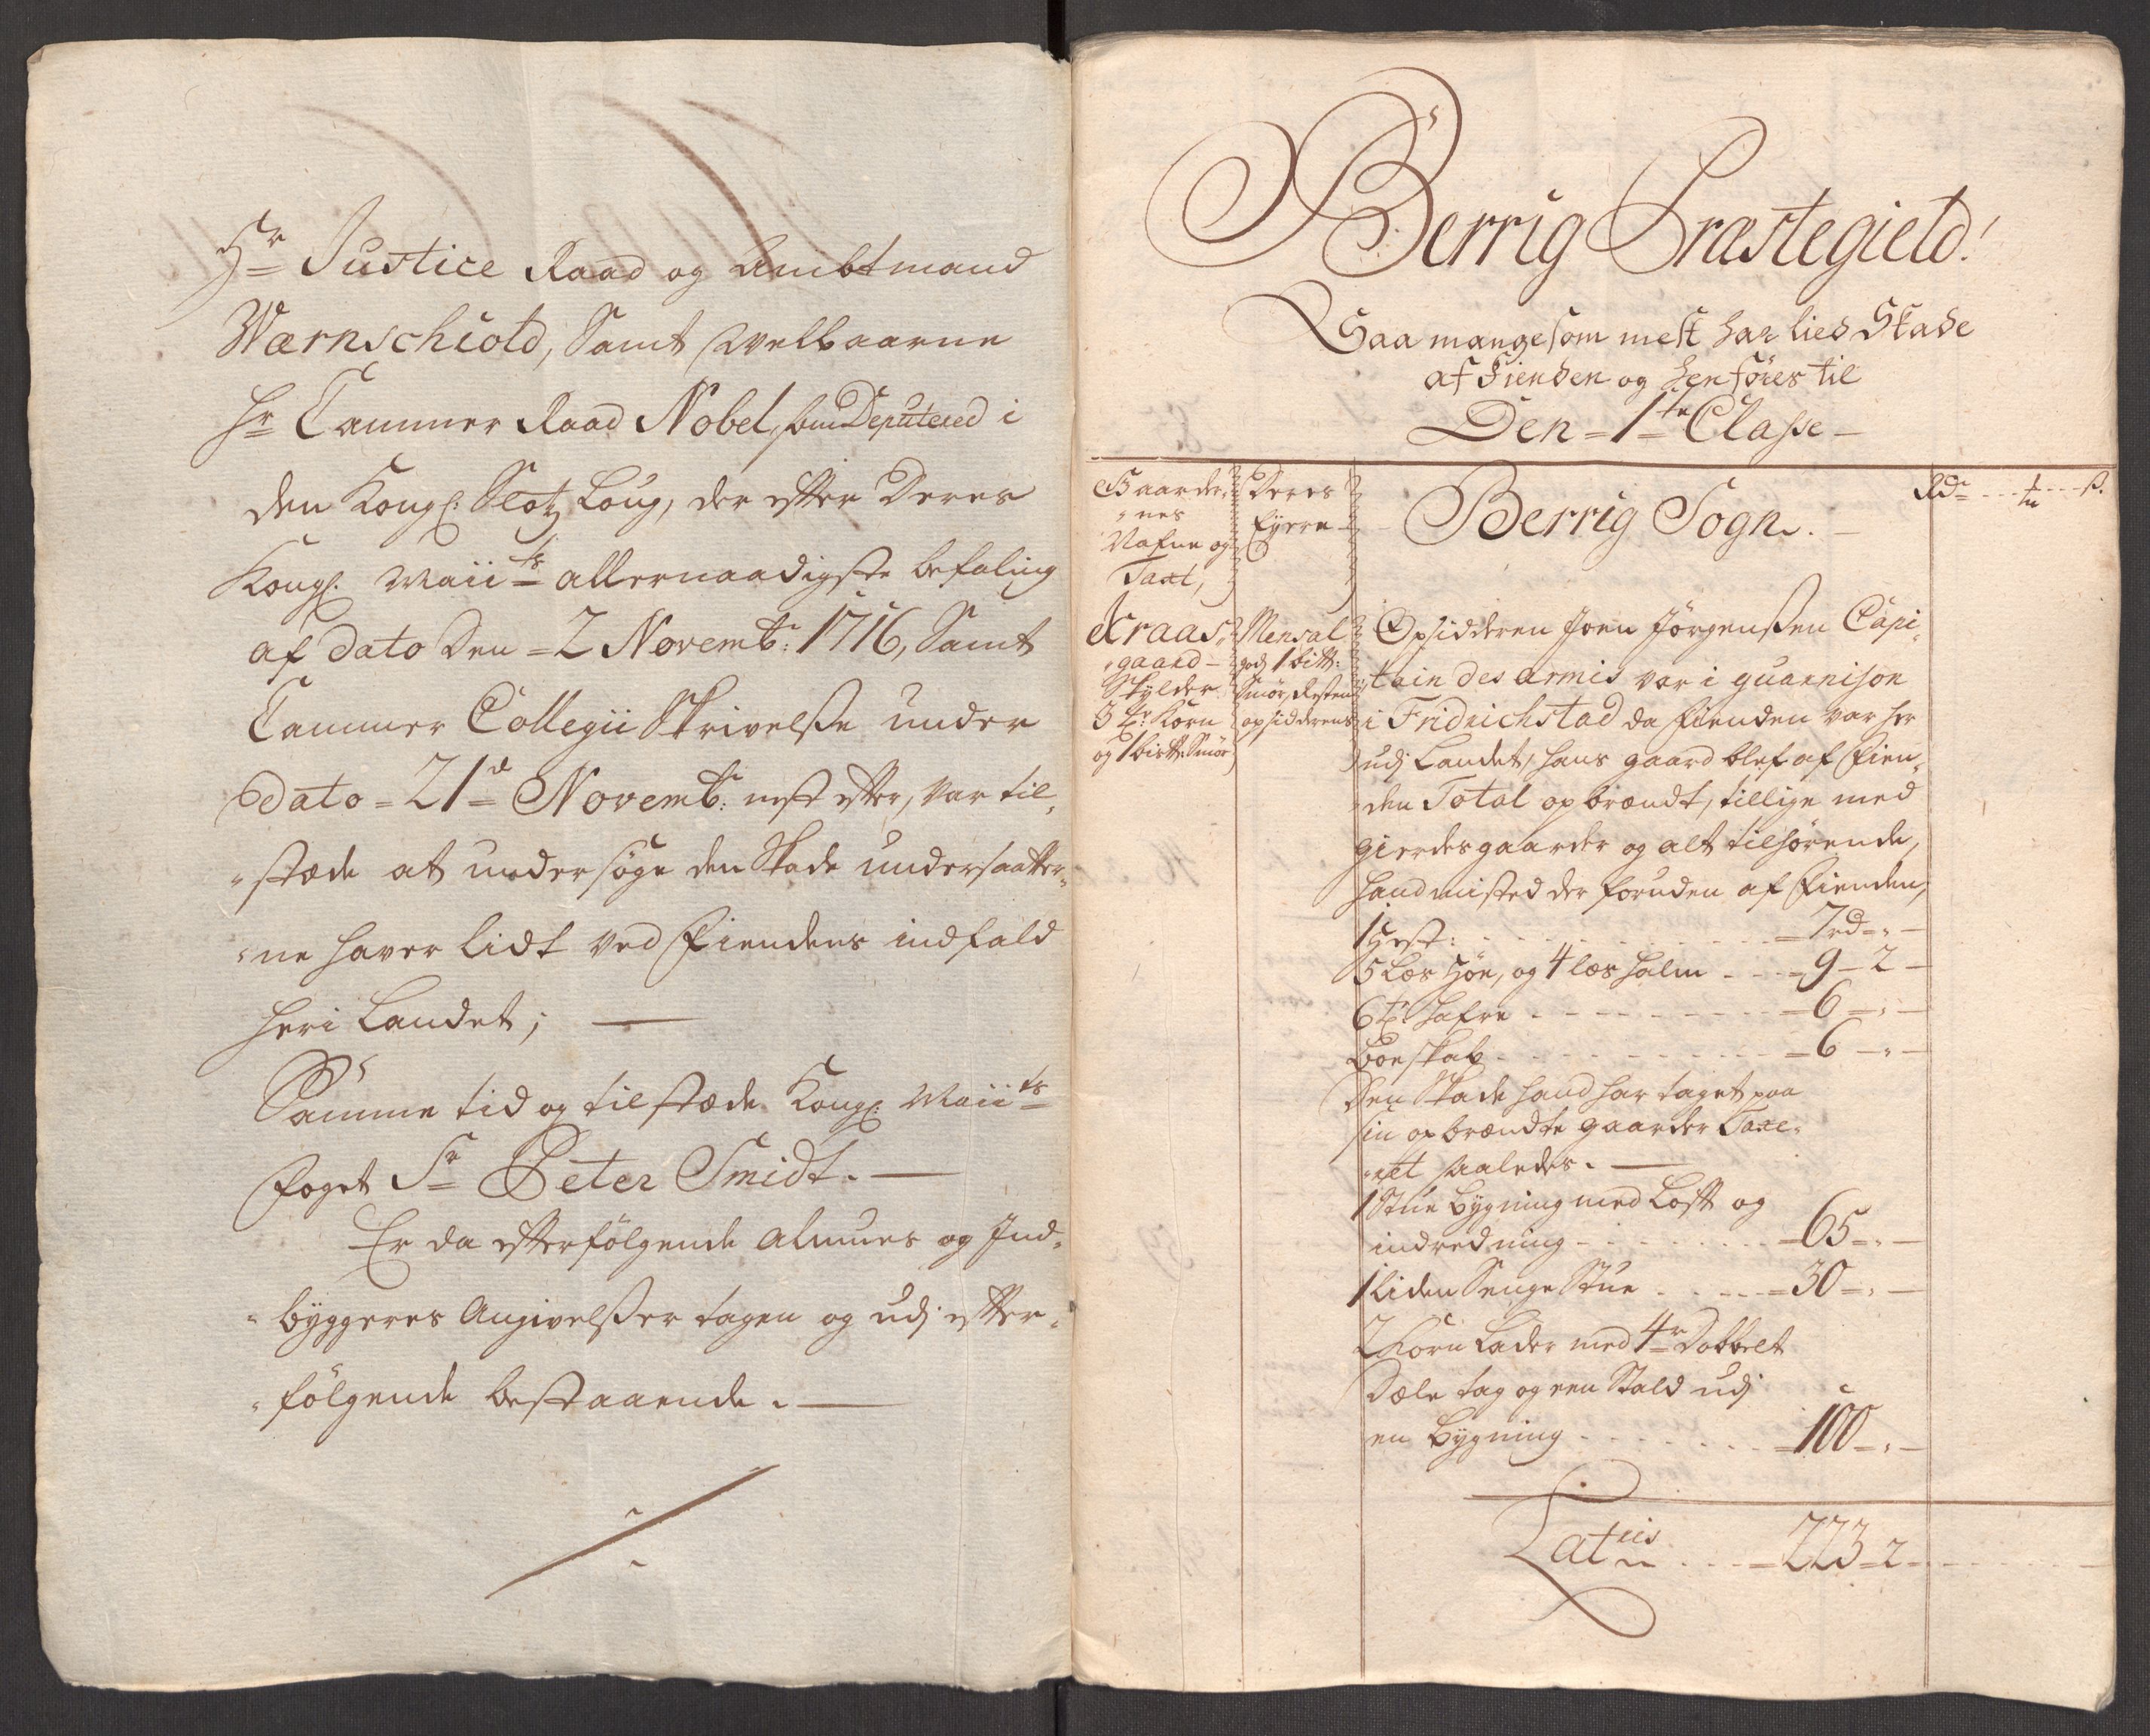 Hr Justice Raad og Ambtmand
Wærnschiold, Samt Welbaarne
Hr Cammer Raad Nobel, som Deputered i
den Kongl: Slotz Loug, der efter Deres
Kongl: Maiits allernaadigste befaling
af dato Den 2 Novembr: 1716, Samt
Cammer Collegii Skrivelsse under
dato 21d Novembr: nest efter, var til-
stæde at undersöge den Skade undersaatter-
ne haver lidt ved Fiendens indfald
heri Landet;
Samme tid og tilstæde Kongl: Maiits
foget Sr Peter Smidt.
Er da efterfölgende Almues og Ind-
byggeres Angivelsser tagen og udj efter-
fölgende bestaaende.
Berrig Præstegield!
Saa mange som mest har lied Skade
af Fienden og henföres til
Den 1te Classe
Gaarder-
nes
Nafne og
Taxt,
Deres
Eyere
Berrig Sogn.
Rdr ß.
Kraas-
gaard
Skylder
3 tr: Korn
og 1 bitt: Smör
Mensal
godz 1 bitt:
Smör, Resten
opsidderens
Opsidderen Joen Jörgenssen Capi-
tain des armis var i guarnison
i Fridrichstad da fienden var her
udj Landet, hans gaard blef af Fien-
den Total opbrændt, tillige med
gierdesgaarder og alt tilhörende,
hand misted der foruden af Fienden,
1 Hest: 7 rd
5 Læs Höe, og 4 læs halm 9 - 2
6 tr hafre 6
Boeskab 6
Den Skade hand har taget paa
sin opbrændte gaarder Taxe-
ret saaledes.
1 Stue bygning med Loft og
indredning 65
1 liden Senge Stue 30
2 Korn Lader med 4re Dobbelt
Dæle tag og een Stald udj
en bygning 100
Latus 223 - 2